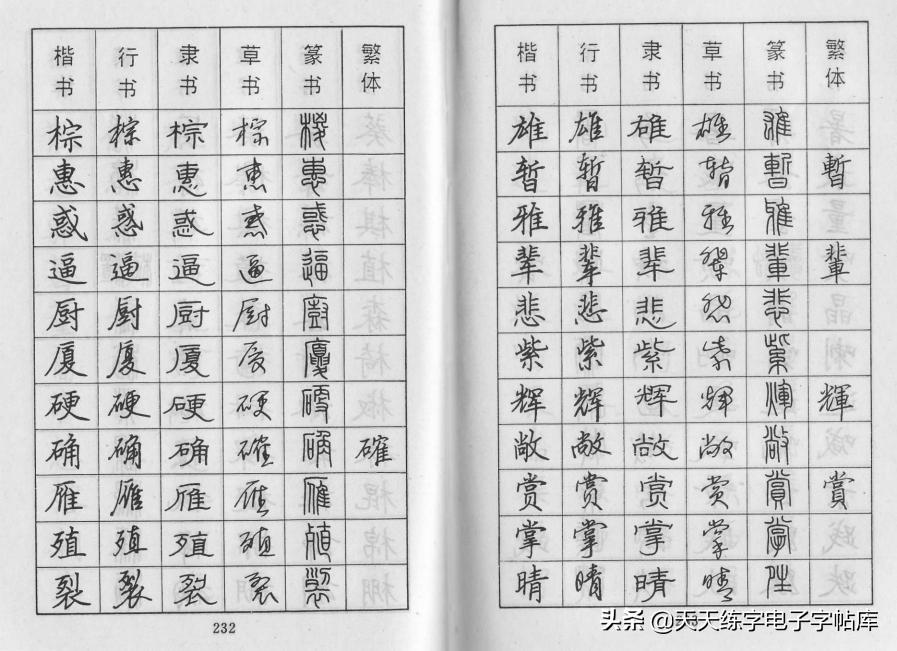 楷书 行书 隶书 草书 篆书 繁体
棕 棕 棕 棕 棕
惠 惠 惠 惠 惠
惑 惑 惑 惑 惑
逼 逼 逼 逼 逼
厨 厨 厨 厨 廚
厦 厦 厦 厦 廈
硬 硬 硬 硬 硬
确 确 确 確 确 確
雁 雁 雁 雁 雁
殖 殖 殖 殖 殖
裂 裂 裂 裂 裂
232
楷书 行书 隶书 草书 篆书 繁体
雄 雄 雄 雄 雄
暂 暂 暂 暂 暫 暫
雅 雅 雅 雅 雅
辈 辈 辈 辈 輩 輩
悲 悲 悲 悲 悲
紫 紫 紫 紫 紫
辉 辉 辉 辉 煇 輝
敞 敞 敞 敞 敞
赏 赏 赏 赏 賞 賞
掌 掌 掌 掌 掌
晴 晴 晴 晴
头条 @天天练字电子字帖库